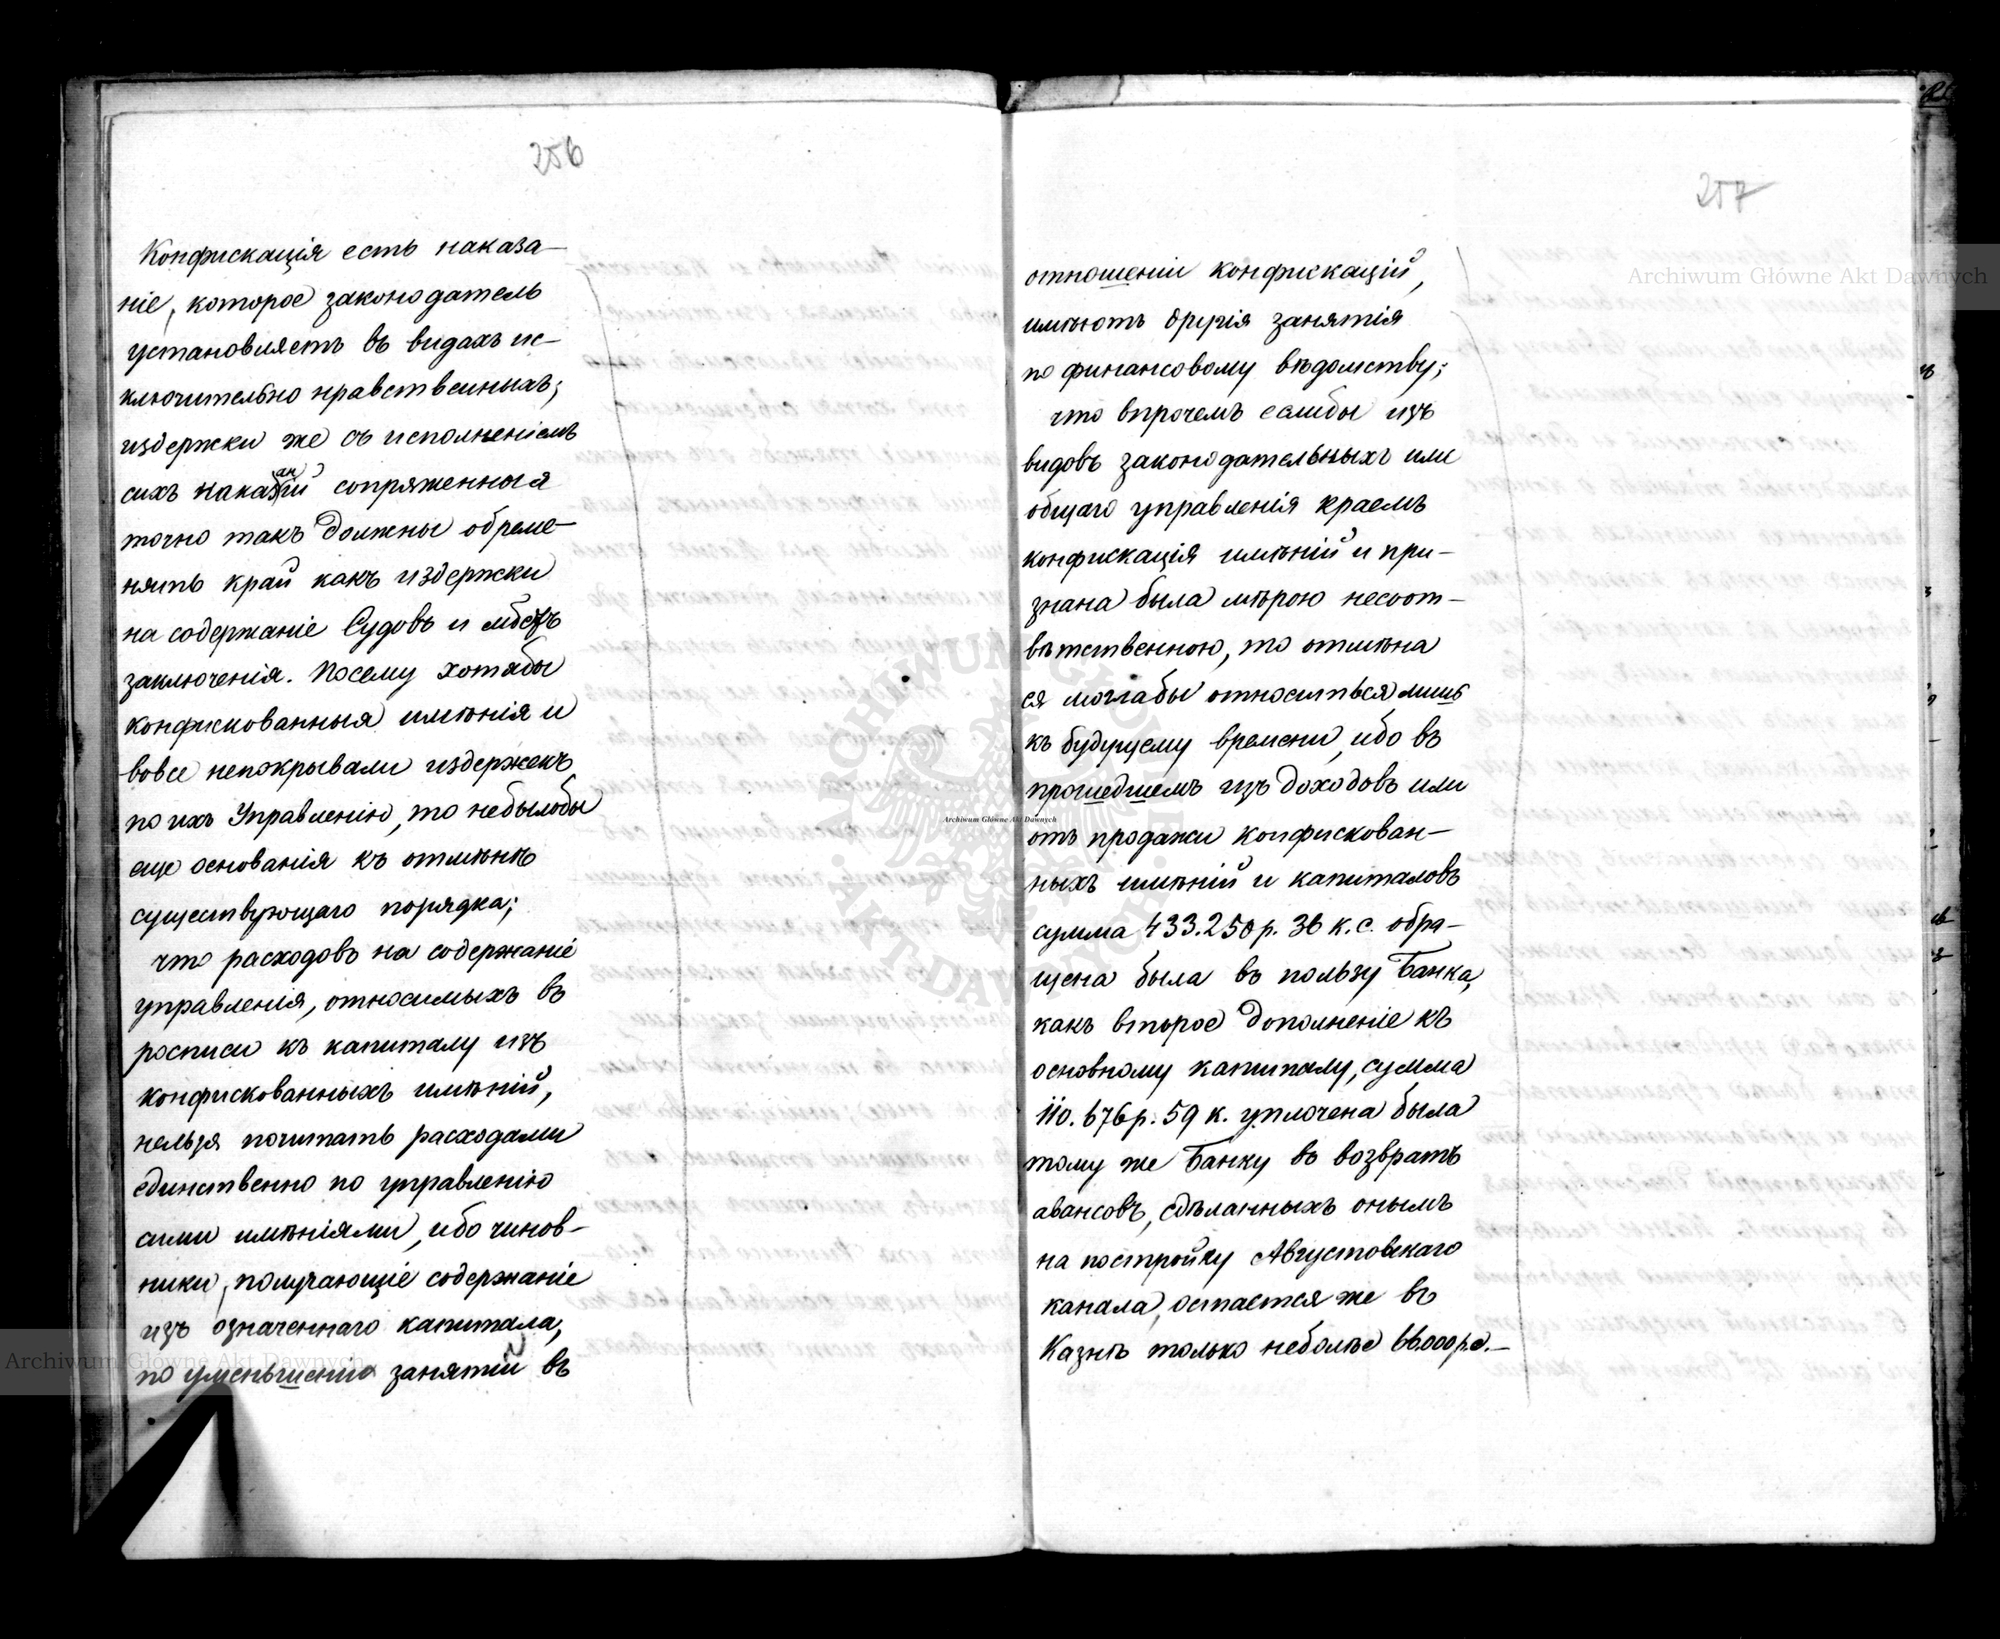 256
Конфискація есть наказа-
ніе, которое законодатель
установляетъ въ видахъ ис-
ключительно нравственныхъ;
издержки же съ исполненіемъ
сихъ наказаній сопряженныя
точно такъ должны обреме-
нять край какъ издержки
на содержаніе Судовъ и мѣстъ
заключенія. Посему хотябы
конфискованныя имѣнія и
вовсе непокрывали издержекъ
по ихъ Управленію, то небылобы
еще основанія къ отмѣнѣ
существующаго порядка;
что расходовъ на содержаніе
управленія, относимыхъ въ
росписи къ капиталу изъ
конфискованныхъ имѣній,
нельзя почитать расходами
единственно по управленію
сими имѣніями, ибо чинов-
ники, получающіе содержаніе
изъ означеннаго капитала,
по уменьшенію занятій въ
257
отношеніи конфискацій,
имѣютъ другія занятія
по финансовому вѣдомству;
что впрочемъ еслибы изъ
видовъ законодательныхъ или
общаго управленія краемъ
конфискація имѣній и при-
знана была мѣрою несоот-
вѣтственною, то отмѣна
ся моглабы относиться лишь
къ будущему времени, ибо въ
прошедшемъ изъ доходовъ или
отъ продажи конфискован-
ныхъ имѣній и капиталовъ
сумма 433.250 р. 36 к. с. обра-
щена была въ пользу Банка,
какъ второе дополненіе къ
основному капиталу, сумма
110.676 р. 59 к. уплочена была
тому же Банку въ возвратъ
авансовъ, сдѣланныхъ онымъ
на постройку Августовскаго
канала, остается же въ
Казнѣ только неболѣе 66.000 р. с.—
Archiwum Główne Akt Dawnych
Archiwum Główne Akt Dawnych
Archiwum Główne Akt Dawnych
ARCHIWUM GŁÓWNE AKT DAWNYCH